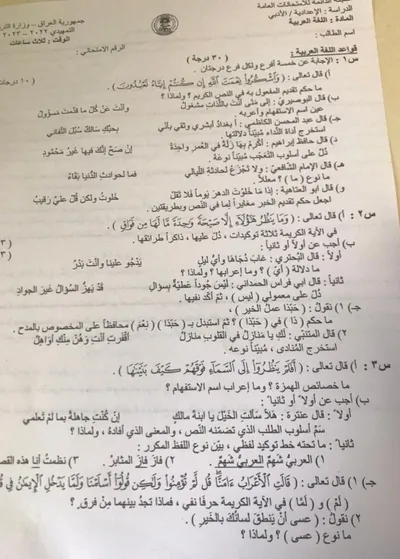 جمهورية العراق - وزارة
الدائمة للامتحانات العامة
التمهيدي ٢٠٢٢ - ٢٠٢٣
الدراسة : الإعدادية / الأدبي
الوقت : ثلاث ساعات
المادة : اللغة العربية
اسم الطالب :
الرقم الامتحاني :
قواعد اللغة العربية : ( ٣٠ درجة )
س١ : الإجابة عن خمسة أفرع ولكل فرع درجتان .
أ) قال تعالى : ( وَاشْكُرُوا نِعْمَتَ اللَّهِ إِنْ كُنْتُمْ إِيَّاهُ تَعْبُدُونَ ) .
ما حكم تقديم المفعول به في النص الكريم ؟ ولماذا ؟
ب) قال البوصيري : إلى متى أنت باللذات مشغول وأنت عن كل ما قدمت مسؤول
عين اسم الاستفهام وأعربه .
ج) قال عبد المحسن الكاظمي : أ بغداد أبشري وثقي بأني بحبك سالك سبل التفاني
استخرج أداة النداء مبيناً دلالتها .
د) قال حافظ إبراهيم : أكرم بها زلة في العمر واحدة إن صح أنك فيها غير محمود
دل على أسلوب التعجب مبيناً نوعه .
هـ) قال الإمام الشافعي : ولا تجزع لحادثة الليالي فما لحوادث الدنيا بقاء
ما نوع ( ما ) ؟ معللاً .
و) قال أبو العتاهية : إذا ما خلوت الدهر يوماً فلا تقل خلوت ولكن قل علي رقيب
اجعل حكم تقديم الخبر مغايراً لما في النص وبطريقتين .
س٢ : أ) قال تعالى : ( وَمَا يَنْظُرُ هَؤُلَاءِ إِلَّا صَيْحَةً وَاحِدَةً مَا لَهَا مِنْ فَوَاقٍ ) .
في الآية الكريمة ثلاثة توكيدات ، دل عليها ، ذاكراً طرائقها .
ب) أجب عن أولاً أو ثانياً :
أولاً : قال البحتري : غاب دجاها وأي ليل يدجو علينا وأنت بدر
ما دلالة ( أي ) ؟ وما إعرابها ؟ ولماذا ؟
ثانياً : قال أبو فراس الحمداني : ليس جوداً عطية بسؤال قد يهز السؤال غير الجواد
دل على معمولي ( ليس ) ، ثم أكد نفيها .
جـ) ١) نقول : ( حبذا عمل الخير ) ،
ما حكم ( ذا ) في ( حبذا ) ؟ ثم استبدل بـ ( حبذا ) ( نعم ) محافظاً على المخصوص بالمدح .
٢) قال المتنبي : لك يا منازل في القلوب منازل أقفرت أنت وهن منك أواهل
استخرج المنادى ، مبيناً نوعه .
س٣ : أ) قال تعالى : ( أَفَلَمْ يَنْظُرُوا إِلَى السَّمَاءِ فَوْقَهُمْ كَيْفَ بَنَيْنَاهَا ) .
ما خصائص الهمزة ؟ وما إعراب اسم الاستفهام ؟
ب) أجب عن أولاً أو ثانياً :
أولاً : قال عنترة : هلا سألت الخيل يا ابنة مالك إن كنت جاهلة بما لم تعلمي
سم أسلوب الطلب الذي تضمنه النص ، والمعنى الذي أفاده ، ولماذا ؟
ثانياً : ما تحته خط توكيد لفظي ، بين نوع اللفظ المكرر :
١) العربي شهم العربي شهم . ٢) فاز فاز المثابر . ٣) نظمت أنا هذه
جـ) ١) قال تعالى : ( قَالَتِ الْأَعْرَابُ آمَنَّا قُلْ لَمْ تُؤْمِنُوا وَلَكِنْ قُولُوا أَسْلَمْنَا وَلَمَّا يَدْخُلِ الْإِيمَانُ فِي
( لم ) و ( لما ) في الآية الكريمة حرفا نفي ، فماذا تجد بينهما من فرق ؟
٢) نقول : ( عسى أن ينطق لسانك بالخير ) .
ما نوع ( عسى ) ؟ ولماذا ؟